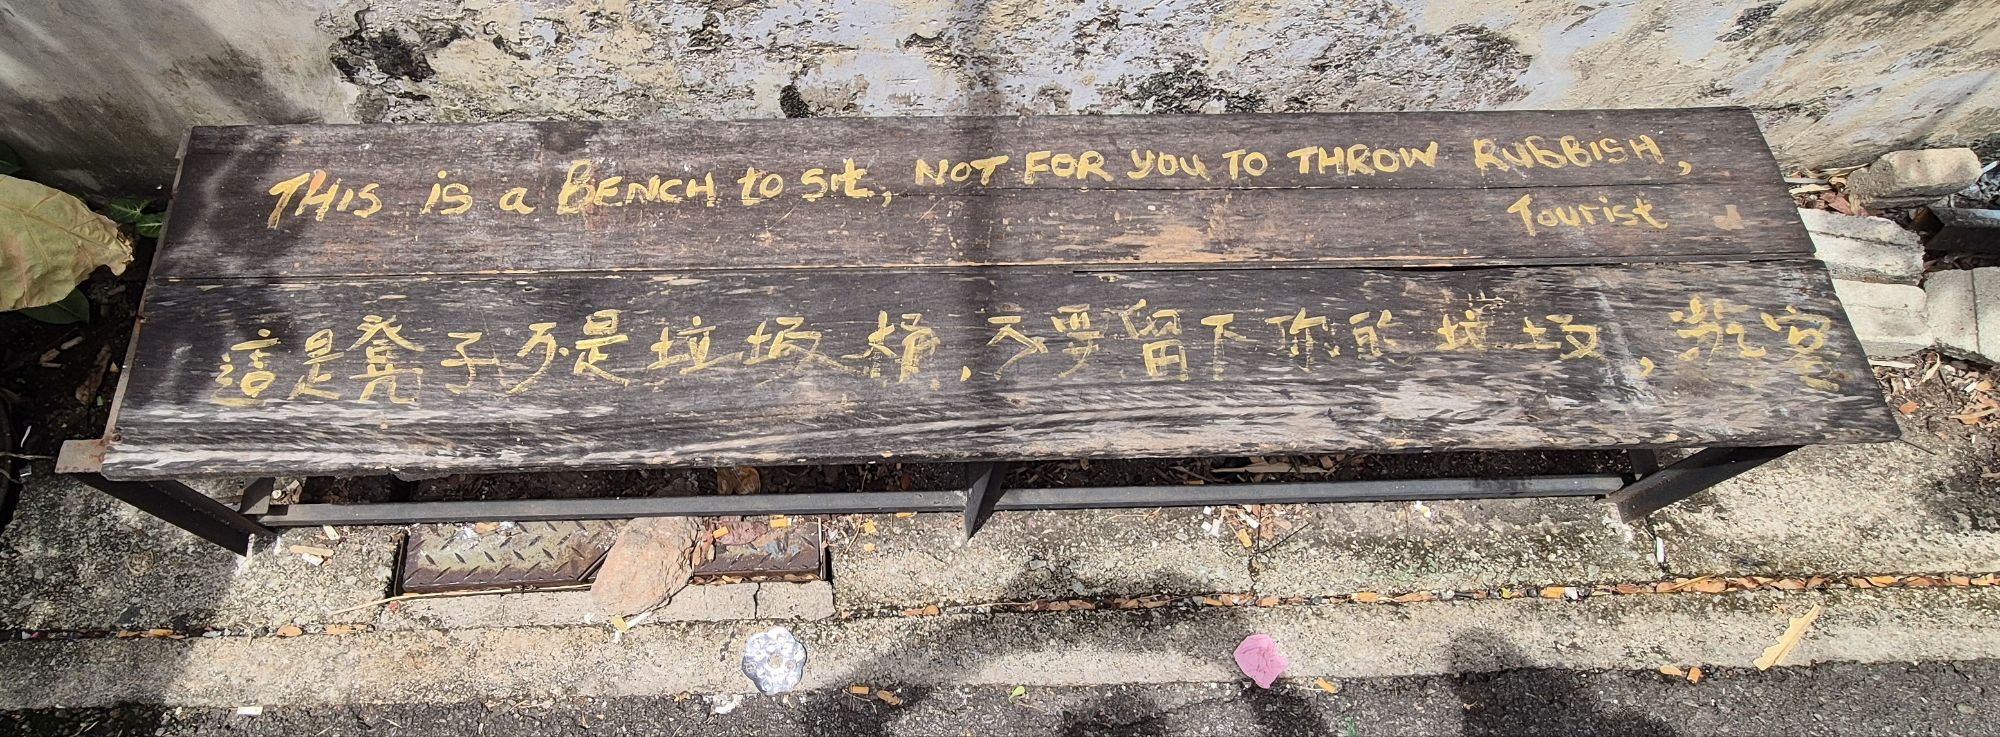 THIS is a BENCH to sit, NOT FOR YOU TO THROW RUBBISH,
Tourist
這是凳子不是垃圾桶,不要留下你的垃圾,遊客